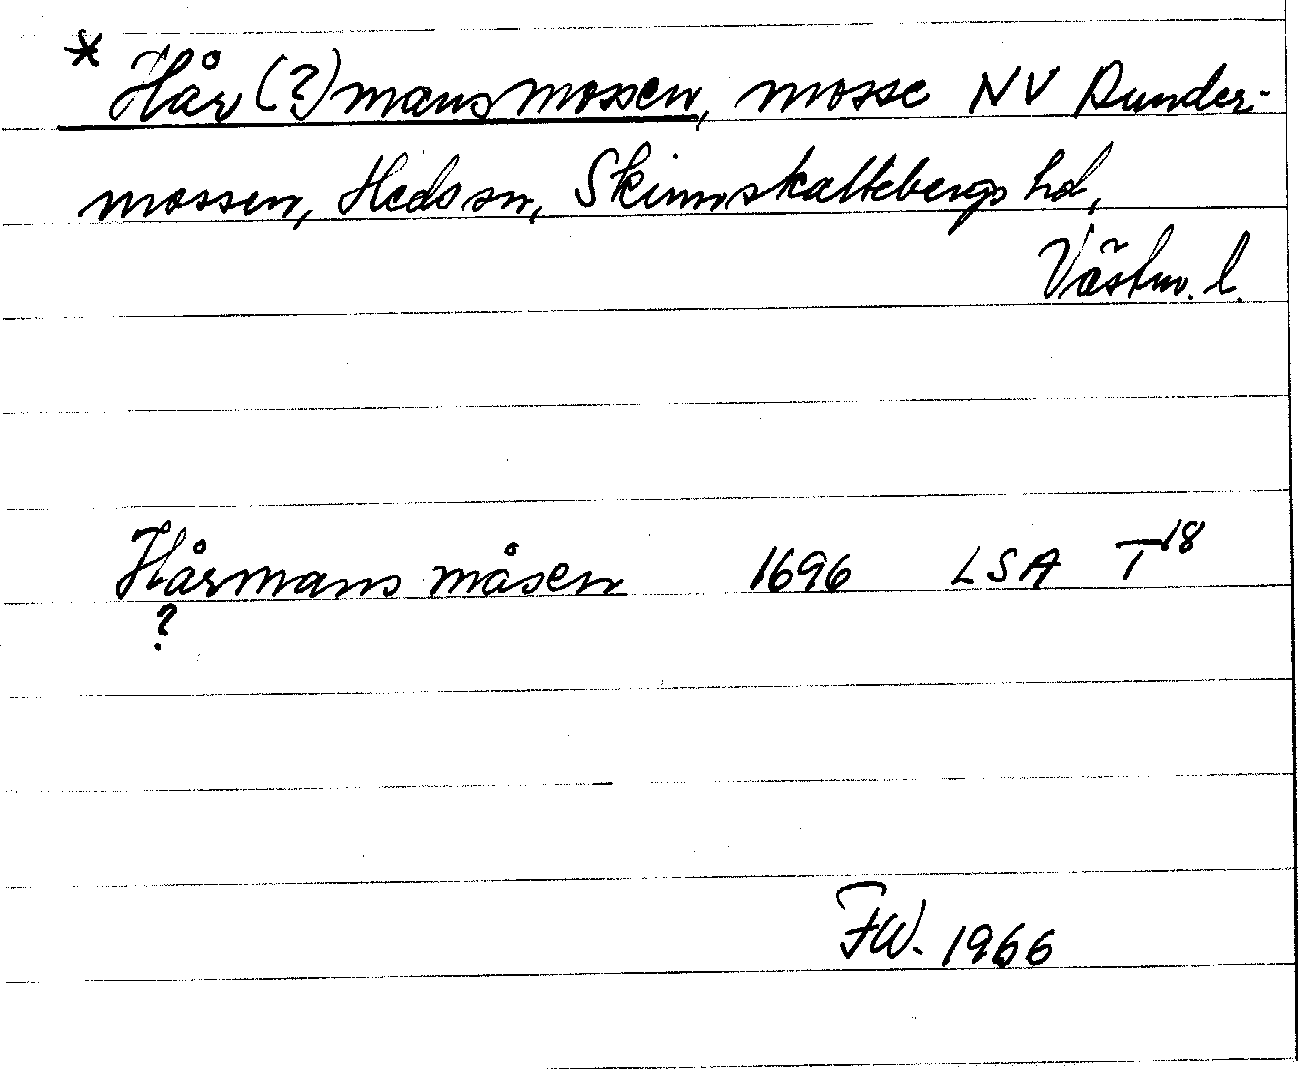 * Hår(?)mansmossen, mosse NV Dunder-
mossen, Heds sn, Skinnskattebergs hd,
Västm. l.
Hårmans måsen 1696 LSA T18
?
FW. 1966